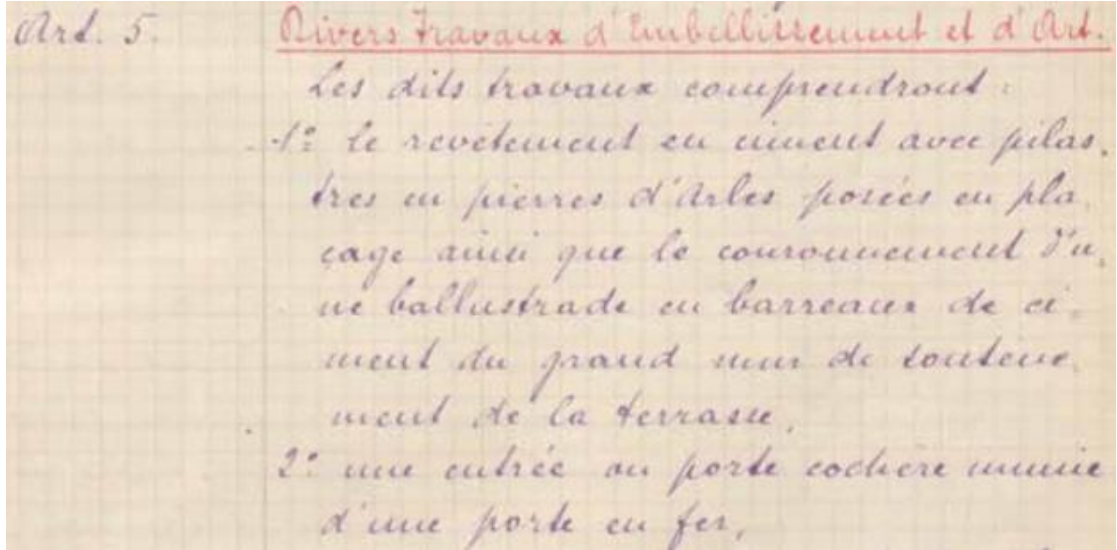 Art. 5. Divers travaux d'Embellissement et d'Art.
Les dits travaux comprendront :
1º le revêtement en ciment avec pilas-
tres en pierres d'Arles posées en pla-
cage ainsi que le couronnement d'u-
ne ballustrade en barreaux de ci-
ment du grand mur de soutène-
ment de la terrasse,
2º une entrée ou porte cochère munie
d'une porte en fer,